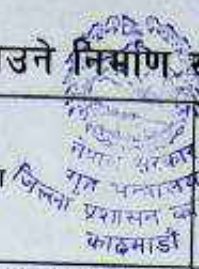 उने निर्माण
नेपाल सरकार
गृह मन्त्रालय
जिल्ला प्रशासन का
काठमाडौं